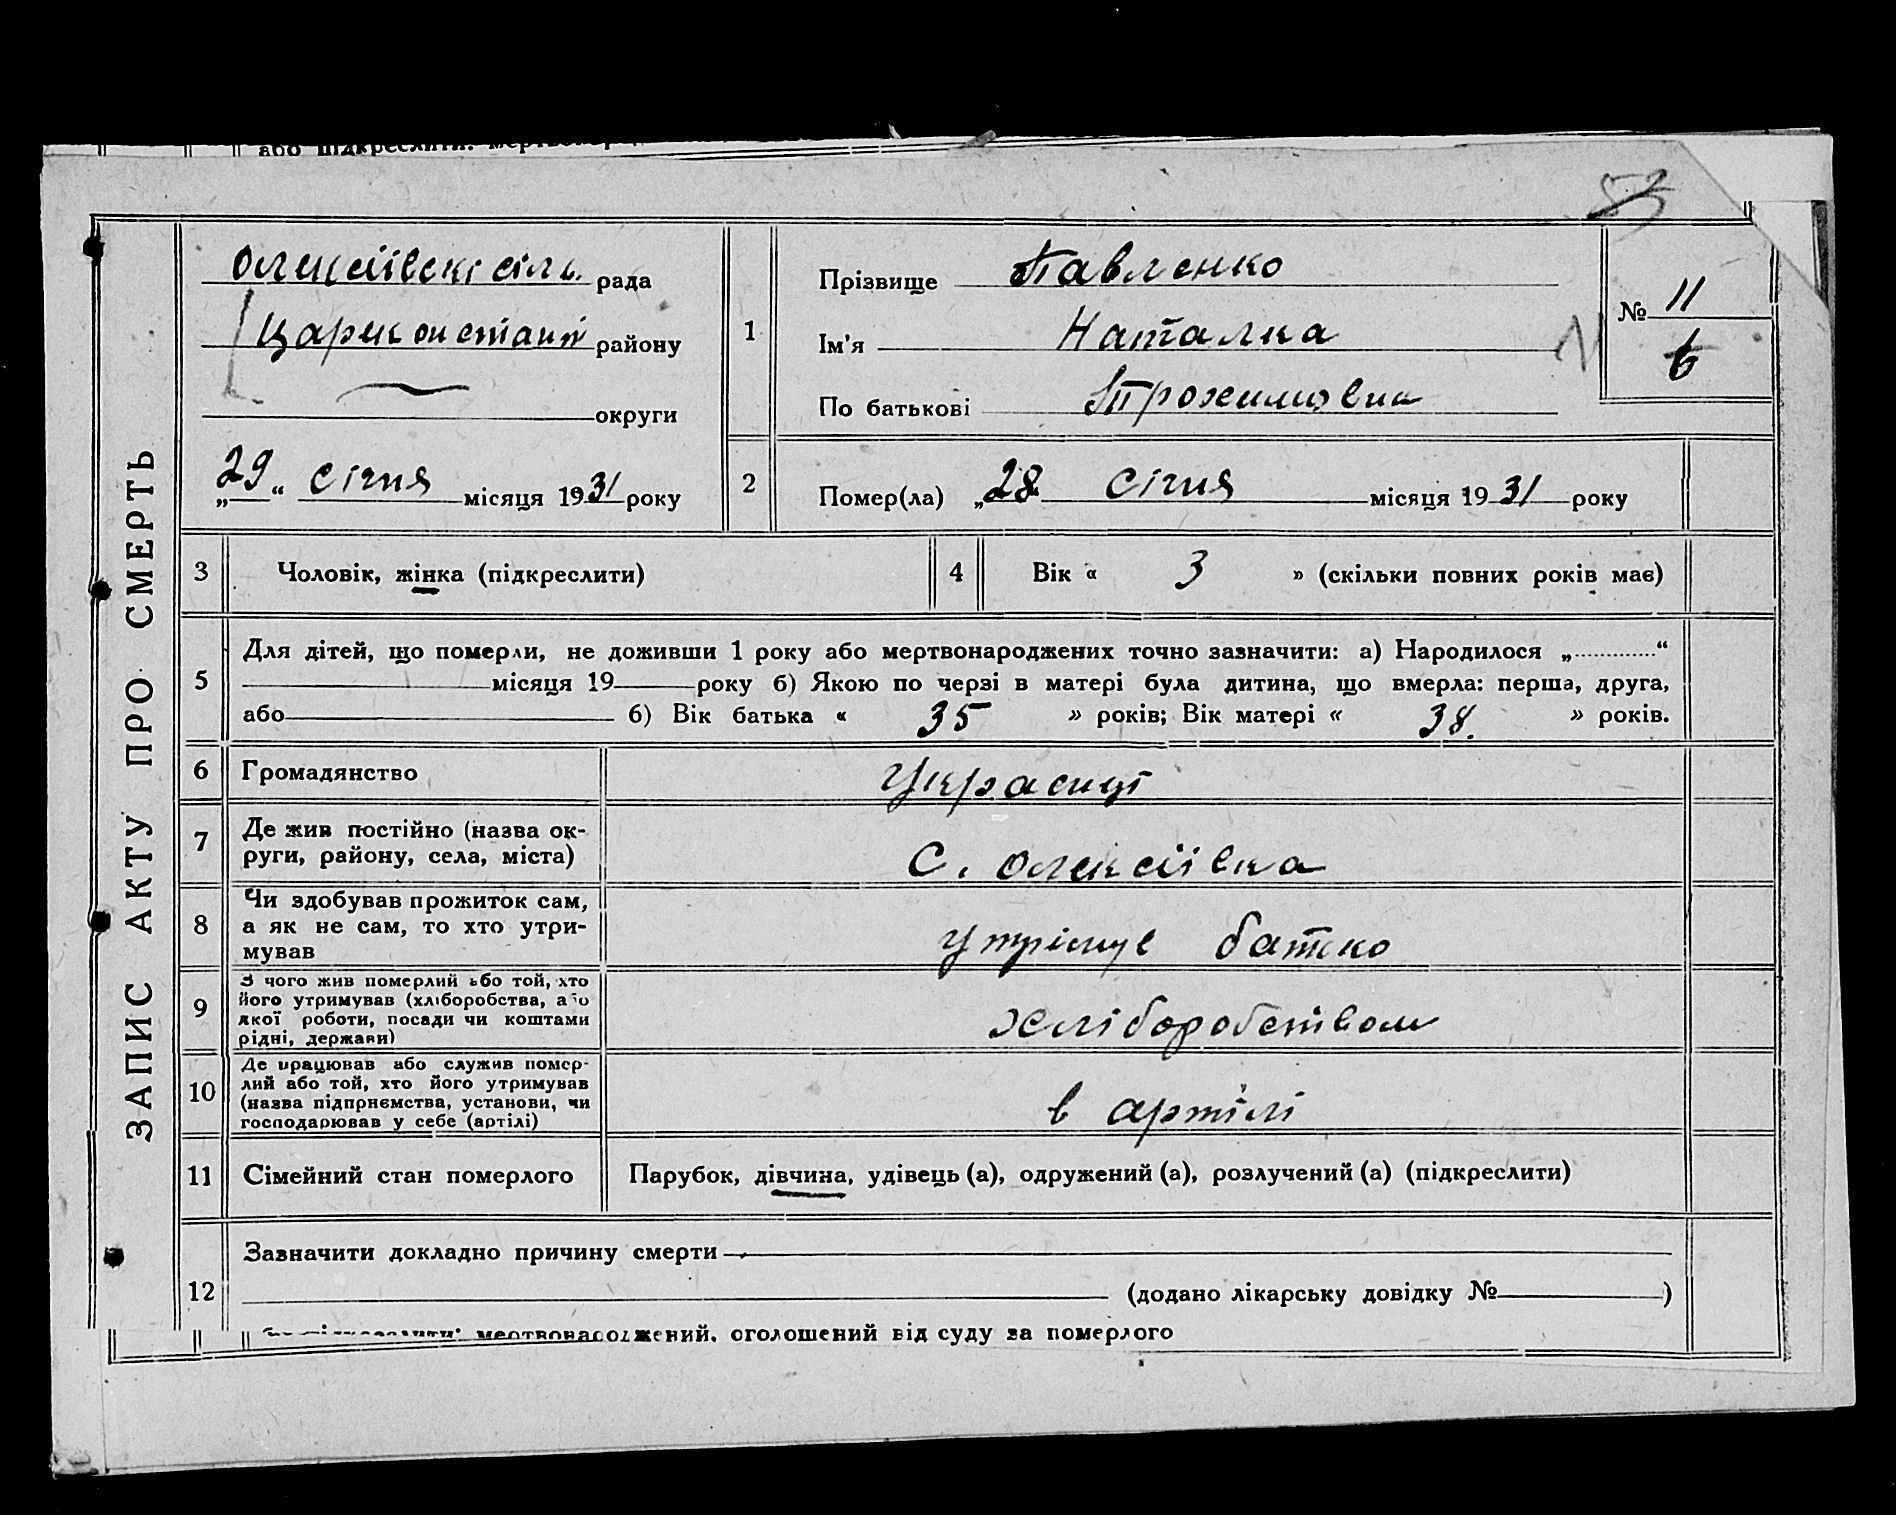 або підкреслити: мертвонарод
53
ЗАПИС АКТУ ПРО СМЕРТЬ
Олексіївскі сіль. рада
Царекон стант району
округи
„29“ Січня місяця 1931 року
1
Прізвище Павленко
Ім'я Наталка
По батькові Трохимовна
№ 11
2
Помер(ла) „28 Січня місяця 1931 року
3 Чоловік, жінка (підкреслити)
4 Вік « 3 » (скільки повних років має)
5
Для дітей, що померли, не доживши 1 року або мертвонароджених точно зазначити: а) Народилося „............“
місяця 19 року б) Якою по черзі в матері була дитина, що вмерла: перша, друга,
або б) Вік батька « 35 » років; Вік матері « 38. » років.
6 Громадянство
7 Де жив постійно (назва ок-
руги, району, села, міста)
С. Олексіївка
8 Чи здобував прожиток сам,
а як не сам, то хто утри-
мував
утрімує батько
9 З чого жив померлий або той, хто
його утримував (хліборобства, або
якої роботи, посади чи коштами
рідні, держави)
хліборобством
10 Де працював або служив помер-
лий або той, хто його утримував
(назва підприємства, установи, чи
господарював у себе (артілі)
в артілі
11 Сімейний стан померлого
Парубок, дівчина, удівець (а), одружений (а), розлучений (а) (підкреслити)
12
Зазначити докладно причину смерти
(додано лікарську довідку № )
мертвонароджений, оголошений від суду за померлого